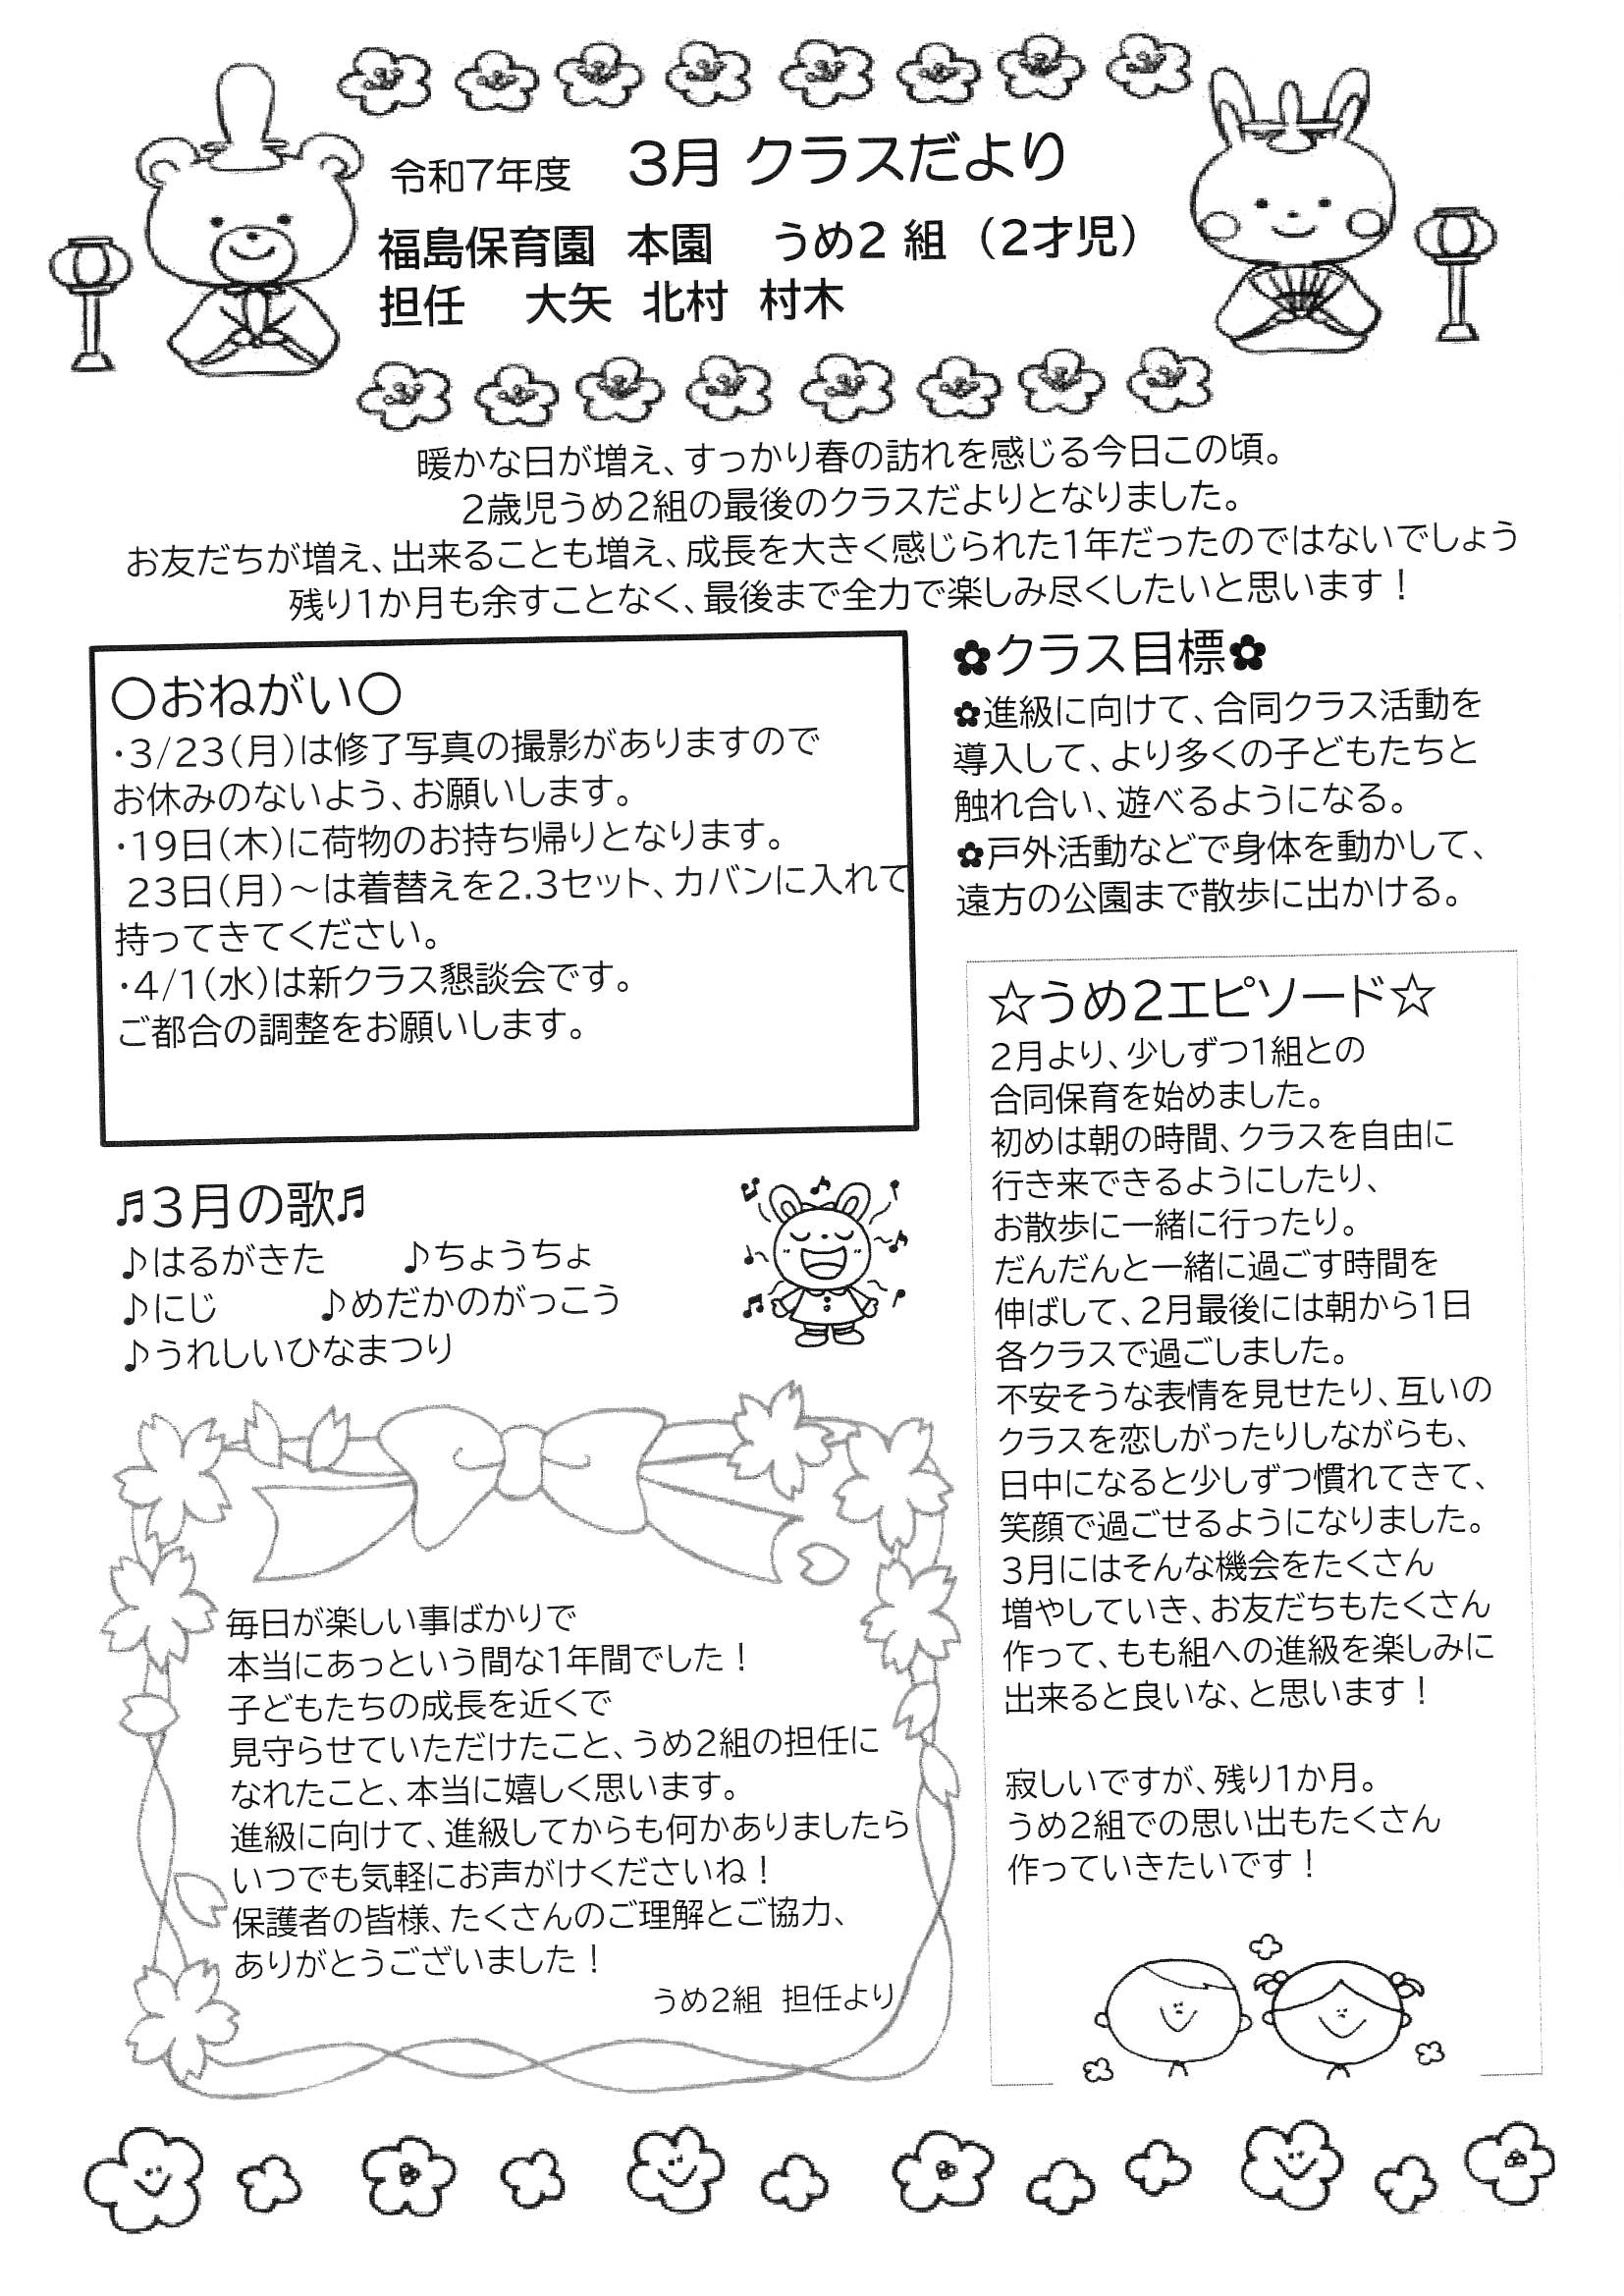 令和7年度　3月 クラスだより
福島保育園　本園　うめ2 組（2才児）
担任　大矢　北村　村木
暖かな日が増え、すっかり春の訪れを感じる今日この頃。
2歳児うめ2組の最後のクラスだよりとなりました。
お友だちが増え、出来ることも増え、成長を大きく感じられた1年だったのではないでしょう
残り1か月も余すことなく、最後まで全力で楽しみ尽くしたいと思います！
〇おねがい〇
・3/23（月）は修了写真の撮影がありますので
お休みのないよう、お願いします。
・19日（木）に荷物のお持ち帰りとなります。
23日（月）～は着替えを2.3セット、カバンに入れて
持ってきてください。
・4/1（水）は新クラス懇談会です。
ご都合の調整をお願いします。
✿クラス目標✿
✿進級に向けて、合同クラス活動を
導入して、より多くの子どもたちと
触れ合い、遊べるようになる。
✿戸外活動などで身体を動かして、
遠方の公園まで散歩に出かける。
♬3月の歌♬
♪はるがきた　♪ちょうちょ
♪にじ　♪めだかのがっこう
♪うれしいひなまつり
☆うめ2エピソード☆
2月より、少しずつ1組との
合同保育を始めました。
初めは朝の時間、クラスを自由に
行き来できるようにしたり、
お散歩に一緒に行ったり。
だんだんと一緒に過ごす時間を
伸ばして、2月最後には朝から1日
各クラスで過ごしました。
不安そうな表情を見せたり、互いの
クラスを恋しがったりしながらも、
日中になると少しずつ慣れてきて、
笑顔で過ごせるようになりました。
3月にはそんな機会をたくさん
増やしていき、お友だちもたくさん
作って、もも組への進級を楽しみに
出来ると良いな、と思います！
寂しいですが、残り1か月。
うめ2組での思い出もたくさん
作っていきたいです！
毎日が楽しい事ばかりで
本当にあっという間な1年間でした！
子どもたちの成長を近くで
見守らせていただけたこと、うめ2組の担任に
なれたこと、本当に嬉しく思います。
進級に向けて、進級してからも何かありましたら
いつでも気軽にお声がけくださいね！
保護者の皆様、たくさんのご理解とご協力、
ありがとうございました！
うめ2組　担任より